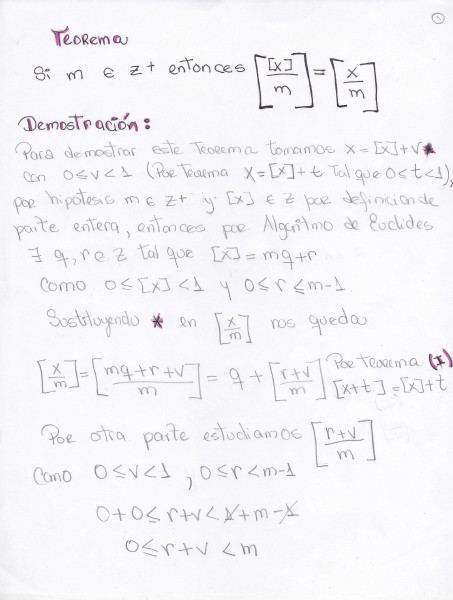 ①
Teorema
Si m ∈ z+ entonces [[x]/m] = [x/m]
Demostración:
Para demostrar este Teorema tomamos x = [x]+v*
con 0≤v<1 (Por Teorema x=[x]+t Tal que 0≤t<1),
por hipotesis m ∈ z+ y [x] ∈ z por definicion de
parte entera, entonces por Algoritmo de Euclides
∃ q, r ∈ z tal que [x]=mq+r
Como 0≤[x]<1 y 0≤r≤m-1.
Sustituyendo * en [x/m] nos queda
[x/m]=[mq+r+v/m] = q+[r+v/m] Por teorema (I)
[x+t]=[x]+t
Por otra parte estudiamos [r+v/m]
Como 0≤v<1, 0≤r<m-1
0+0≤r+v<1+m-1
0≤r+v<m